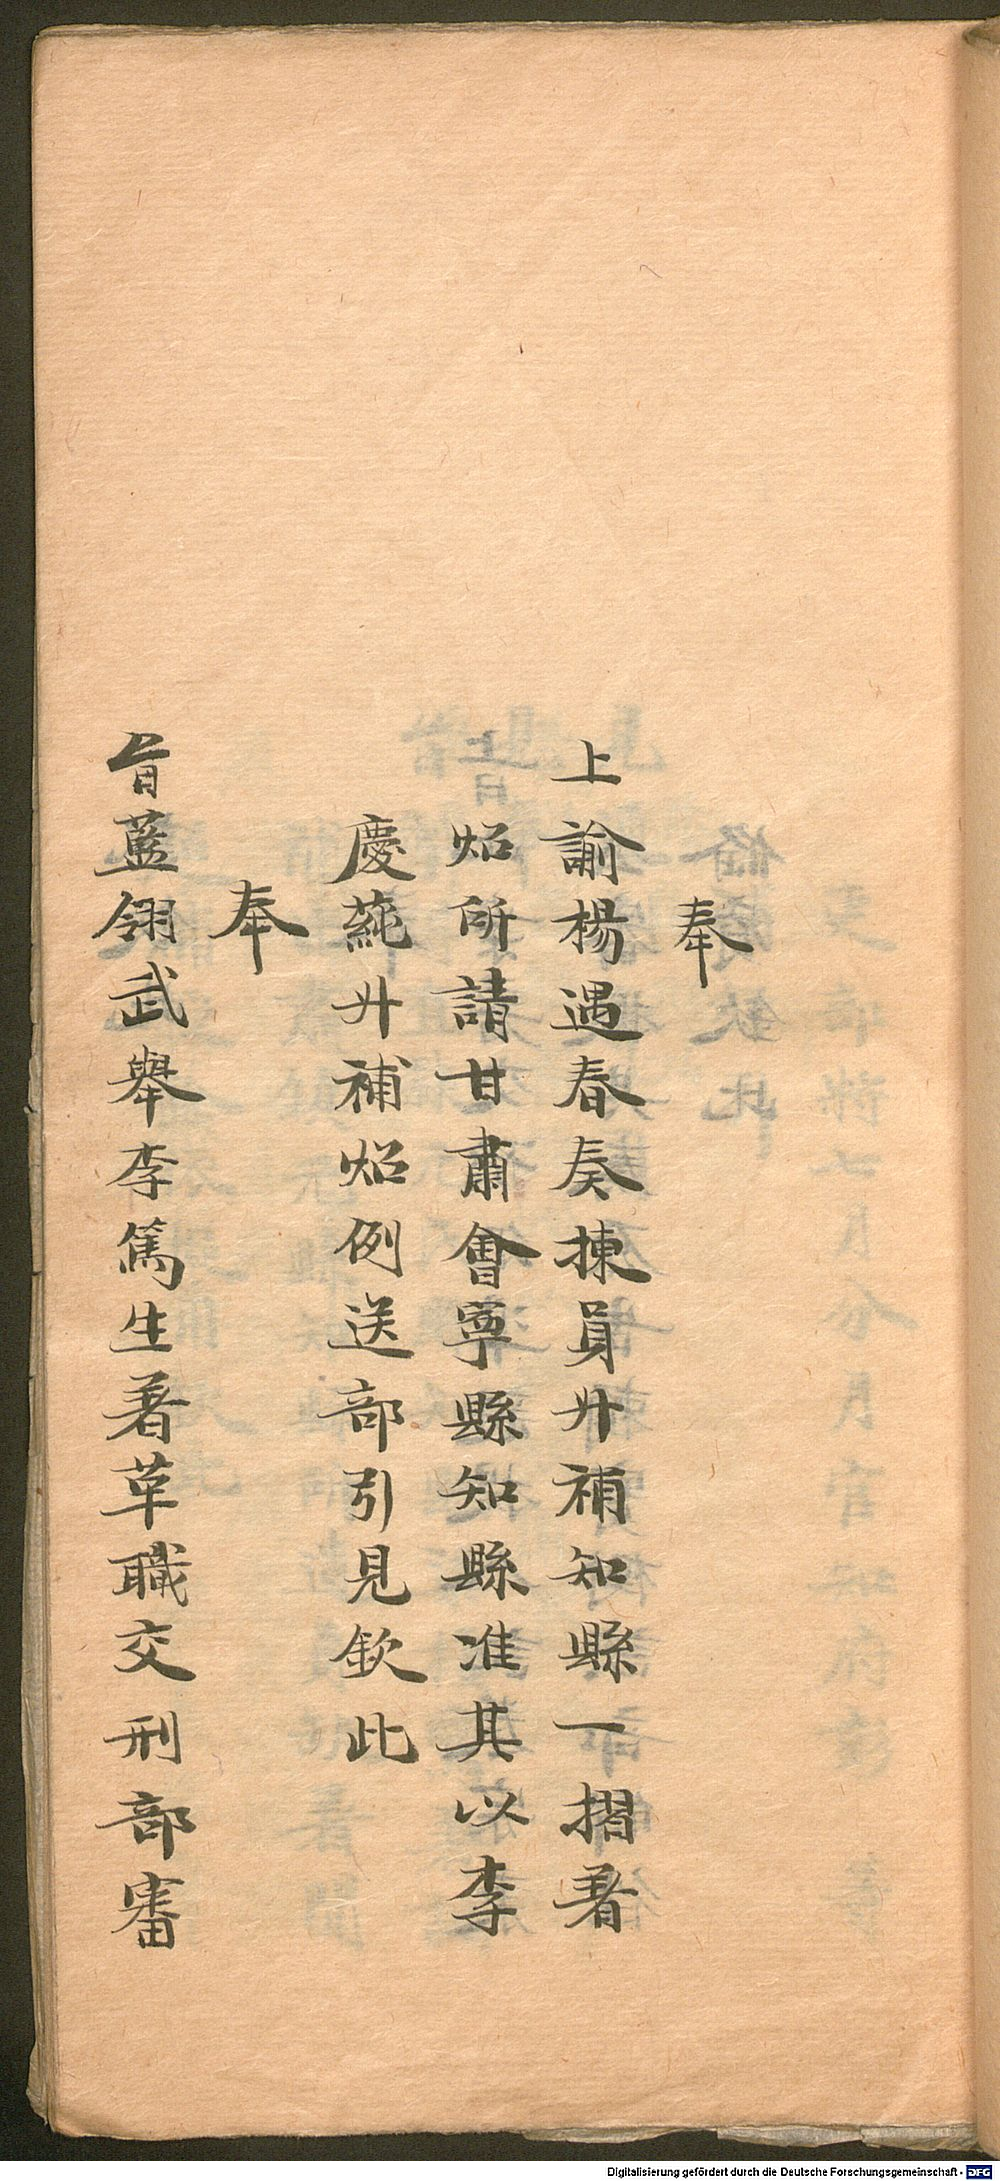 奉
上諭楊遇春奏揀員升補知縣一摺著
炤所請甘肅會寧縣知縣准其以李
慶蒓升補炤例送部引見欽此
奉
旨藍翎武舉李篤生著革職交刑部審
Digitalisierung gefördert durch die Deutsche Forschungsgemeinschaft - DFG